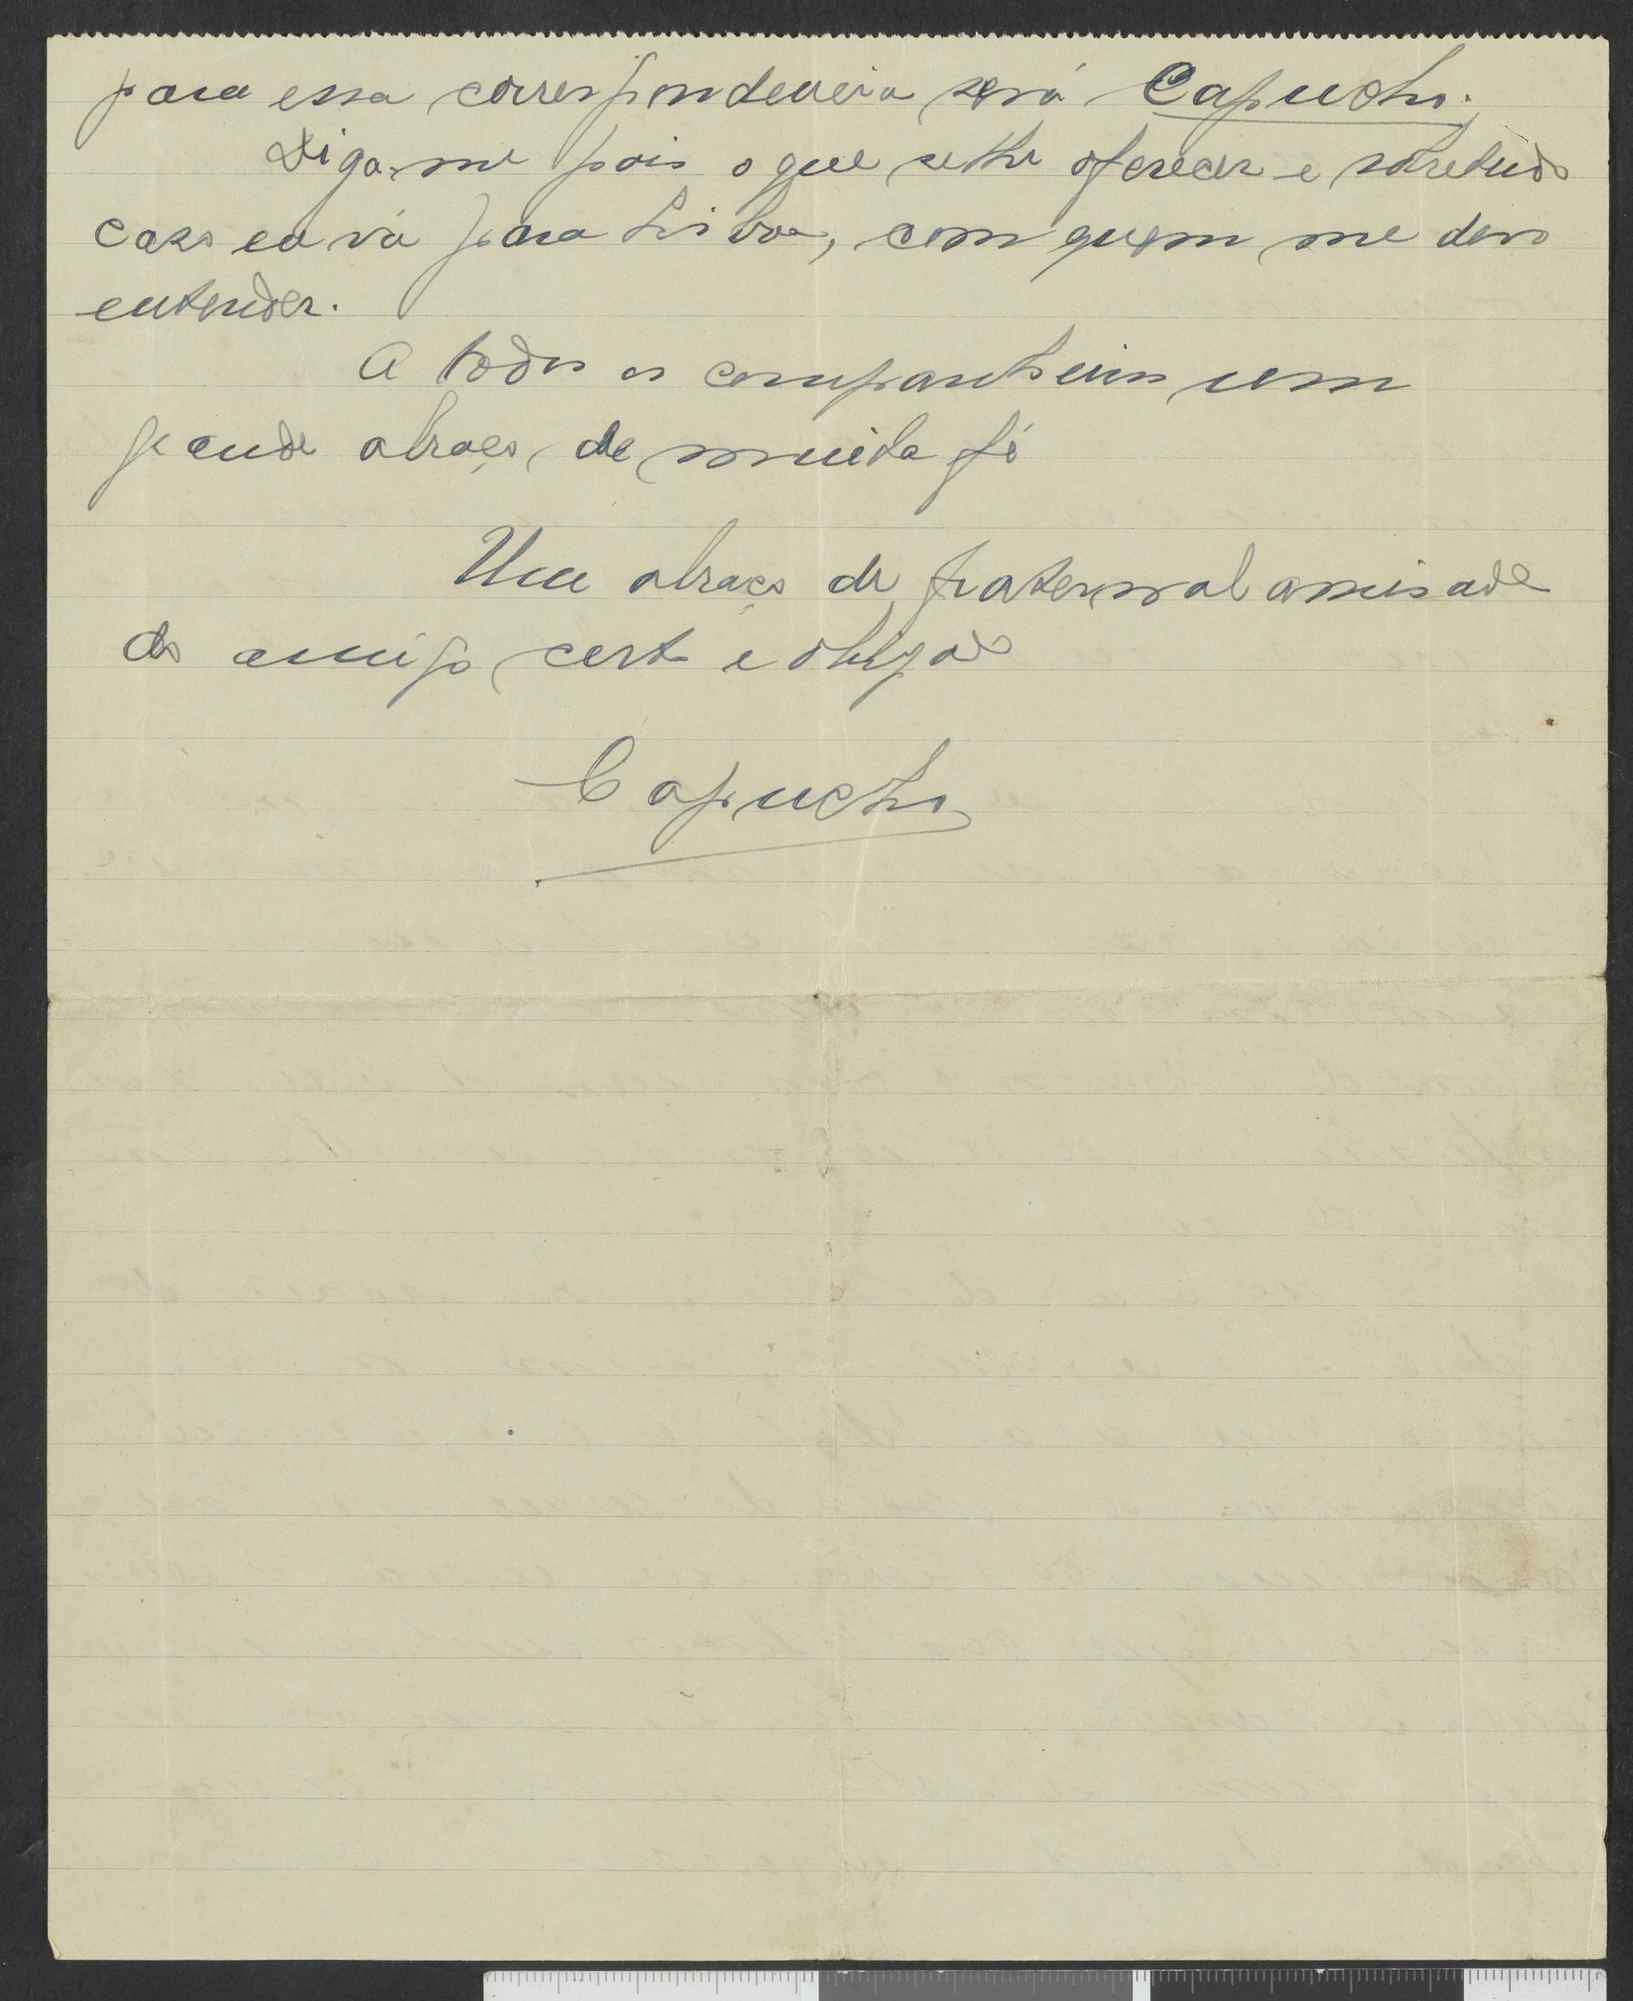 para essa correspondencia será Capucho.
Diga-me pois o que se lhe oferecer e sobretudo
caso eu vá para Lisboa, com quem me devo
entender.
A todos os companheiros um
grande abraço, de muita fé
Um abraço de fraternal amisade
do amigo certo e obrigado
Capucho